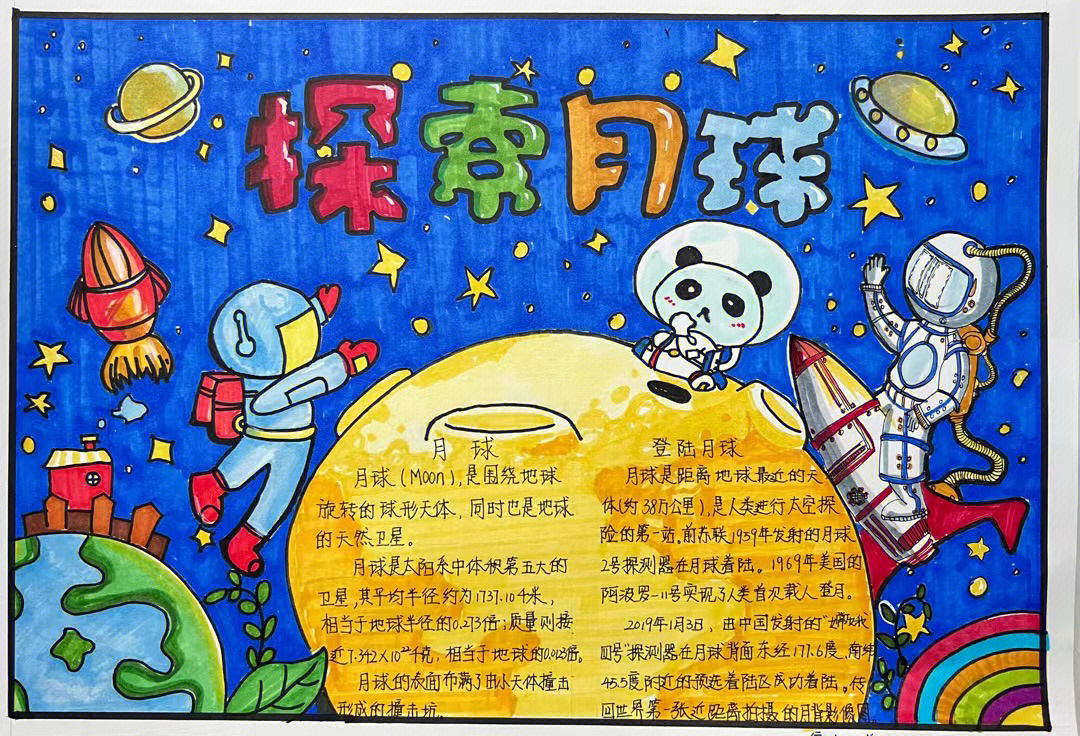 探索月球
月球
月球(Moon),是围绕地球
旋转的球形天体,同时也是地球
的天然卫星。
月球是太阳系中体积第五大的
卫星,其平均半径约为1737.104米,
相当于地球半径的0.273倍;质量则接
近7.342×10²²千克,相当于地球的0.0123倍。
月球的表面布满了由小天体撞击
形成的撞击坑。
登陆月球
月球是距离地球最近的天
体(约38万公里),是人类进行太空探
险的第一站。前苏联1959年发射的月球
2号探测器在月球着陆。1969年美国的
阿波罗-11号实现了人类首次载人登月。
2019年1月3日,由中国发射的"嫦娥
四号"探测器在月球背面东经177.6度、南纬
45.5度附近的预选着陆区成功着陆。传
回世界第一张近距离拍摄的月背影像图。